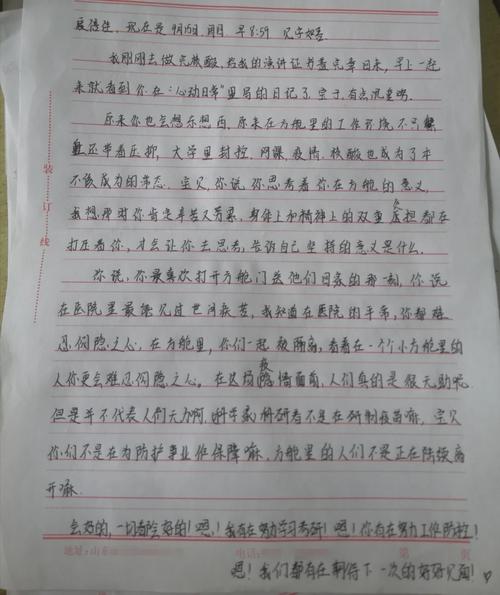 爱德佳,现在是9月15日,周日,早8:59 见字如吾
我刚刚去做完核酸,将我的演讲证书盖完章回来,早上一起
来就看到你在:心动日常"里写的日记了,宝子,有点沉重呜.
原来你也会想东想西,原来在方舱里的工作环境不只繁
重还带着压抑,大学里封控,网课,疫情,核酸也成为了本
不该成为的常态.宝贝,你说,你思考着你在方舱的意义,
我想那时你肯定辛苦又劳累,身体上和精神上的双重负担都在
打压着你,才会让你去思考,告诉自己坚持的意义是什么.
你说,你最喜欢打开方舱门送他们回家的那一刻,你说
在医院里最能见过世间疾苦,我知道在医院的平常,你都难
忍恻隐之心,在方舱里,你们一起被隔离,看着在一个个小方舱里的
人你更会难忍恻隐之心。在这场疫情面前,人们真的是很无助呢
但是并不代表人们无力啊,科学家,科研者不是在研制疫苗嘛,宝贝
你们不是在为防护事业作保障嘛,方舱里的人们不是正在陆续离
开嘛.
会好的,一切都会好的!嗯!我有在努力学习考研!嗯!你有在努力工作防控!
地址:山东 电话: 第 页
嗯!我们都有在期待下一次的好好见面!
装
订
线